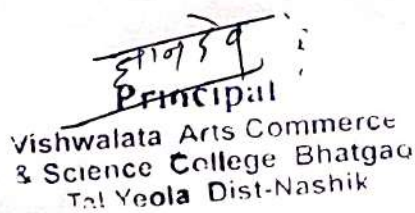 ज्ञानदेव
Principal
Vishwalata Arts Commerce
& Science College Bhatgaq
Tal Yeola Dist-Nashik